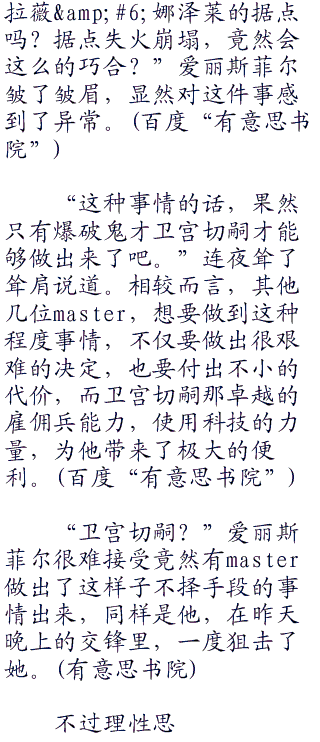 拉薇&amp;#6;娜泽菜的据点
吗？据点失火崩塌，竟然会
这么的巧合？”爱丽斯菲尔
皱了皱眉，显然对这件事感
到了异常。(百度“有意思书
院”)
“这种事情的话，果然
只有爆破鬼才卫宫切嗣才能
够做出来了吧。”连夜耸了
耸肩说道。相较而言，其他
几位master，想要做到这种
程度事情，不仅要做出很艰
难的决定，也要付出不小的
代价，而卫宫切嗣那卓越的
雇佣兵能力，使用科技的力
量，为他带来了极大的便
利。(百度“有意思书院”)
“卫宫切嗣？”爱丽斯
菲尔很难接受竟然有master
做出了这样子不择手段的事
情出来，同样是他，在昨天
晚上的交锋里，一度狙击了
她。(有意思书院)
不过理性思